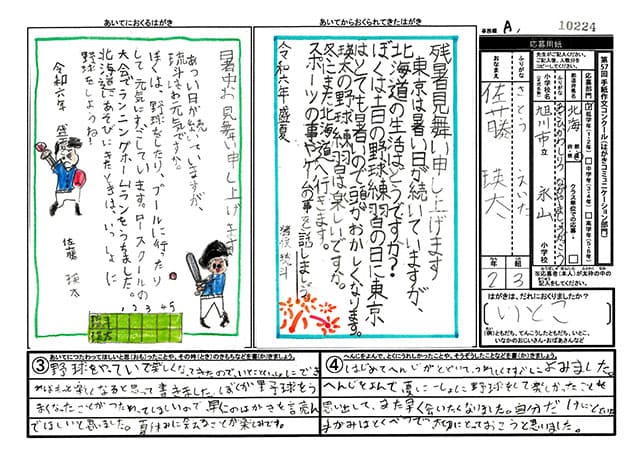 あいてにおくるはがき
暑中お見舞い申し上げます
あつい日が続いていますが、
琉斗はお元気ですか。
ぼくは、野球をしたり、プールに行ったり
して元気にすごしています。タースクールの
大会でランニングホームランをうちました。
北海道にあそびにきたときは、いっしょに
野球をしようね!
令和六年 盛夏
佐藤 瑛太
1 2 3 4 5
あいてからおくられてきたはがき
残暑見舞い申し上げます
東京は暑い日が続いていますが、
北海道の生活はどうですか?
ぼくは土日の野球練習の日に東京
はとても暑いので頭がおかしくなります。
瑛太の野球練習は楽しいですか。
冬にまた北海道へ行きます。
スポーツの事やゲームの事を話しましょう
令和六年盛夏
事務欄 A
10224
応募用紙
第57回 手紙作文コンクール(はがきコミュニケーション部門)
応募部門
小学校名
北海
旭川市立
永山
小学校
ふりがな
さとう えいた
おなまえ
佐藤 瑛太
2 年
3 組
※応募者(本人)が太枠の中の
記入してください。
はがきは、だれにおくりましたか?
(いとこ)
(例)ともだち、てんこうしたともだち、いとこ、
いなかのおじいさん・おばあさんなど
③ あいてにつたわってほしいと思(おも)ったことや、その時(とき)のきもちなどを書(か)きましょう。
野球をやっていて楽しくなってきたので、いとこといっしょにでき
ればもっと楽しくなると思って書きました。ぼくが野球をう
まくなったことがつたわってほしいので早くこのはがきを読ん
でほしいと思いました。夏休みに会えることが楽しみです。
④ へんじをよんで、とくにうれしかったことや、そうぞうしたことなどを書(か)きましょう。
はじめてへんじがとどいて、うれしくてすぐによみました。
へんじをよんで、夏にいっしょに野球をして楽しかったことを
思い出して、また早く会いたくなりました。自分だけにとどいた
てがみはとくべつで、大切にとっておこうと思いました。